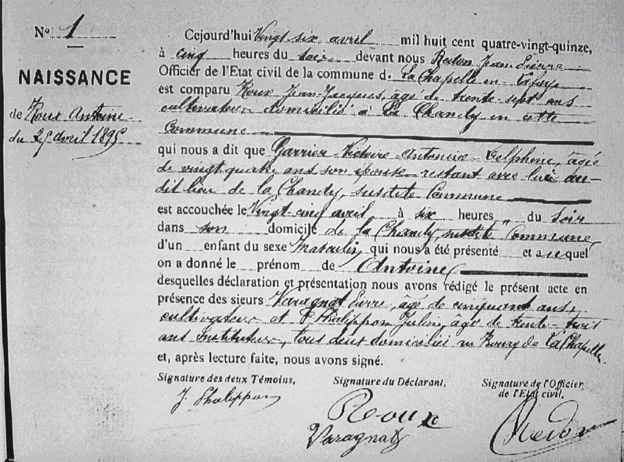 N° 1
NAISSANCE
de Roux Antoine
du 25 avril 1895
Cejourd'hui Vingt six avril mil huit cent quatre-vingt-quinze,
à cinq heures du soir devant nous Redon Jean Pierre
Officier de l'Etat civil de la commune de La Chapelle en
est comparu Roux Jean-Jacques, âgé de trente-sept ans
cultivateur domicilié à La Chandy en cette
Commune
qui nous a dit que Garrier Victoire Antonia Delphine, âgée
de vingt quatre ans son épouse restant avec lui au-
dit lieu de la Chandy, susdite Commune
est accouchée le Vingt-cinq avril, à six heures du soir
dans son domicile de la Chandy, susdite Commune,
d'un enfant du sexe Masculin, qui nous a été présenté et auquel
on a donné le prénom de Antoine,
desquelles déclaration et présentation nous avons rédigé le présent acte en
présence des sieurs Varagnat âgé de cinquante ans,
cultivateur et Philippon Julien, âgé de trente-trois
ans Instituteur, tous deux domiciliés au Bourg de La Chapelle
et, après lecture faite, nous avons signé.
Signature des deux Témoins,
Signature du Déclarant,
Signature de l'Officier
de l'Etat civil.
J. Philippon
Roux
Varagnat
Redon